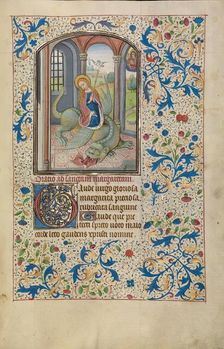 Oratio ad sanctam margaretam
Gaude uirgo gloriosa
margareta preciosa
rubicata sanguine
Gaude que pe
tisti
corde leto gaudens xpristi nomine.